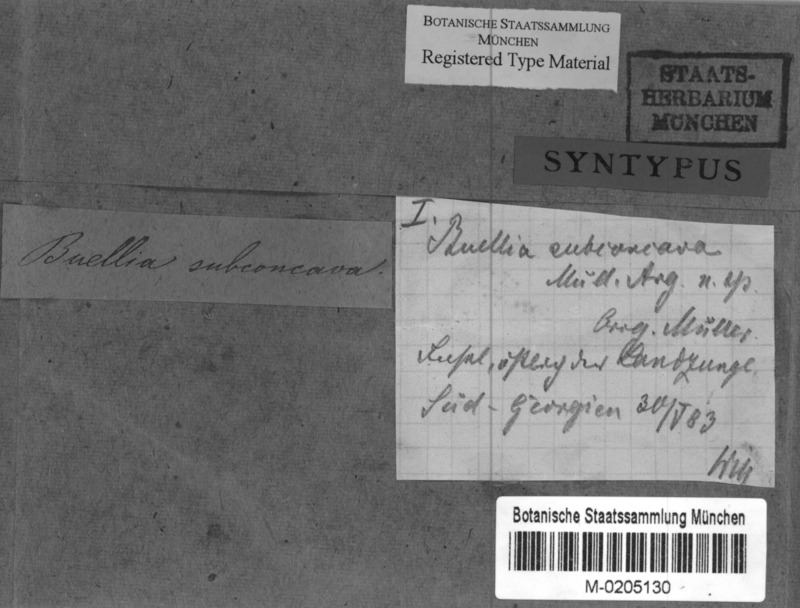 BOTANISCHE STAATSSAMMLUNG
MÜNCHEN
Registered Type Material
STAATS-
HERBARIUM
MÜNCHEN
SYNTYPUS
Buellia subconcava.
I.
Buellia subconcava
Müll. Arg. n. sp.
Müller.
Insel, östlich der Landzunge.
Süd-Georgien 30/V 83
Will
Botanische Staatssammlung München
M-0205130